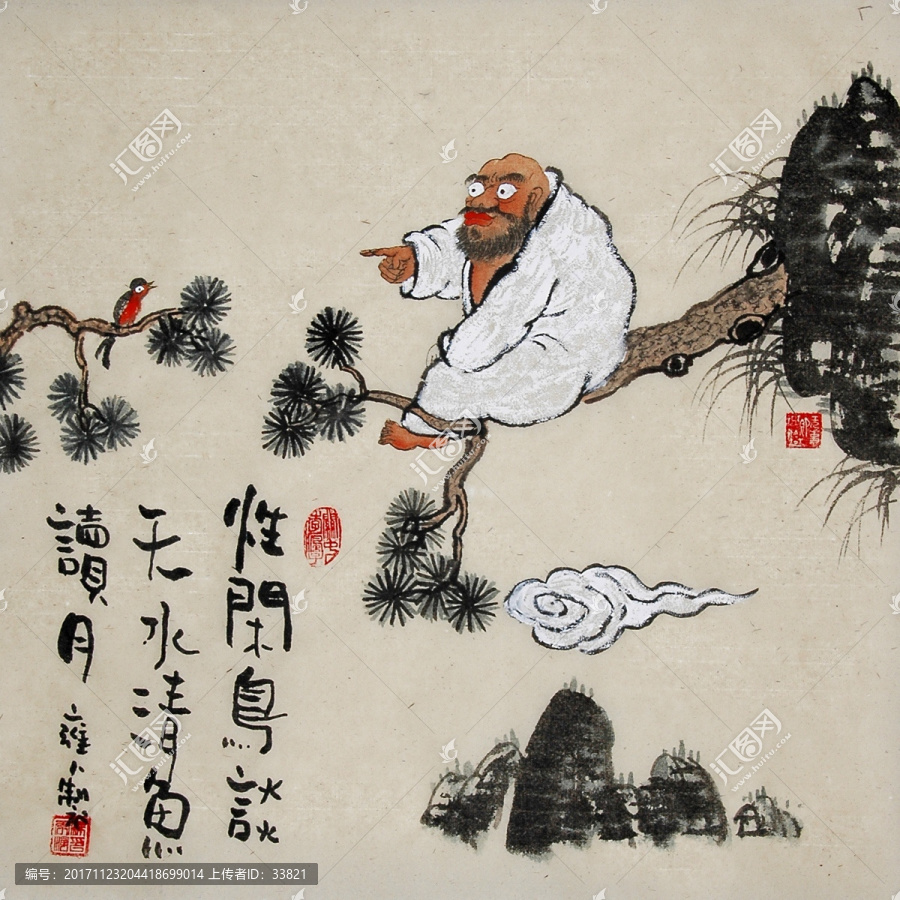 性閑鳥談
天水清魚
讀月
汇图网
www.huitu.com
编号：20171123204418699014 上传者ID：33821